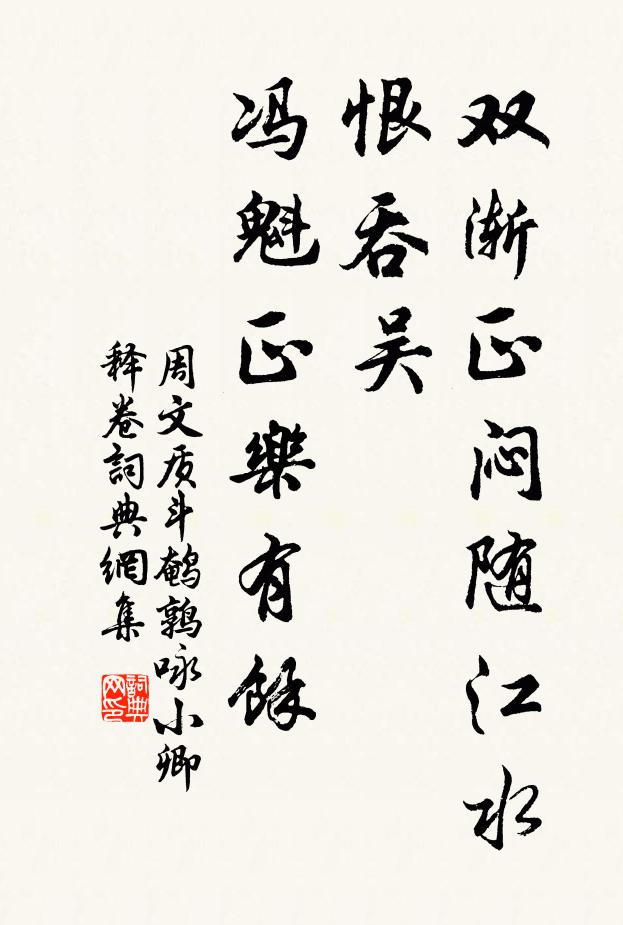 双渐正闷随江水
恨吞吴
冯魁正樂有餘
周文质斗鹌鹑咏小卿
释卷詞典網集
詞典网印